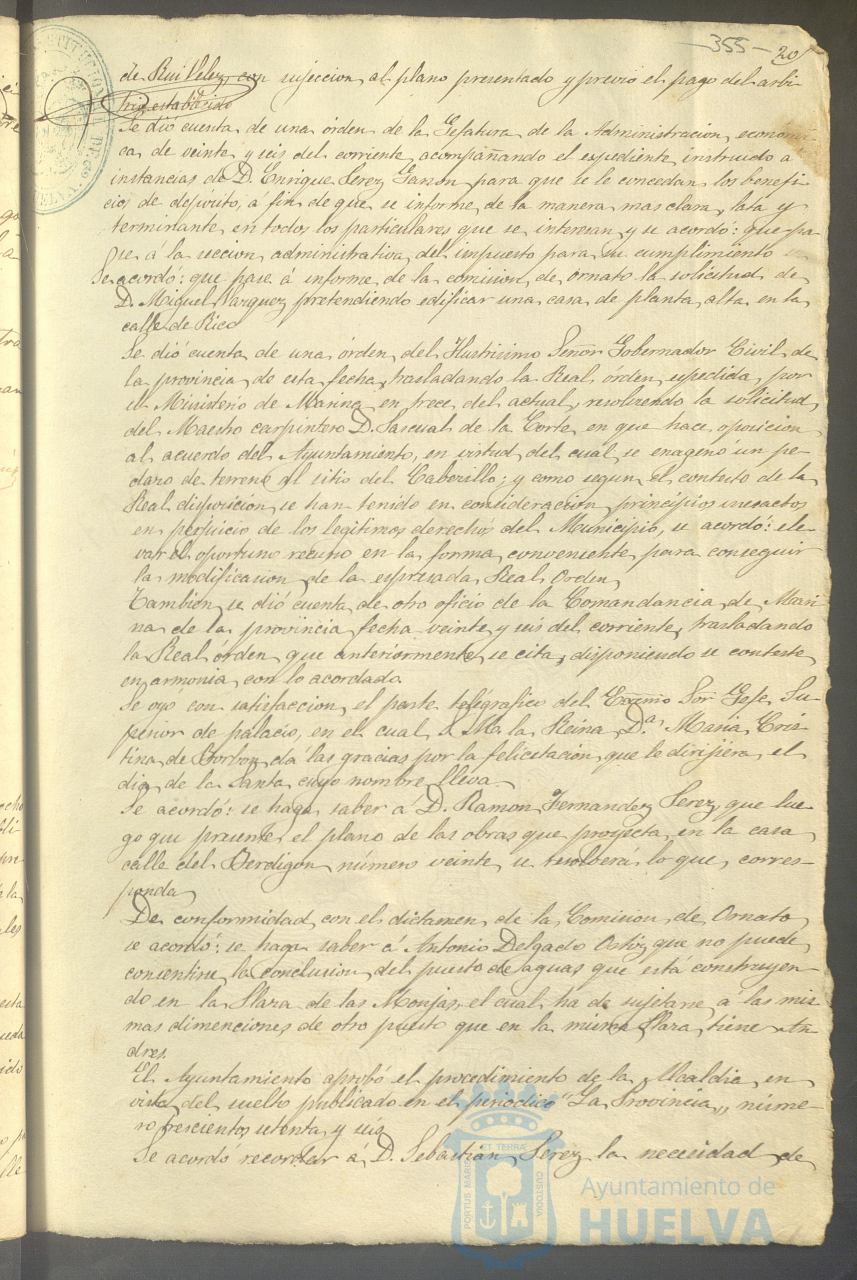 —355— 20
de Rui Velez, con sujeccion, al plano presentado y previo el pago del arbi-
trio establecido
Se dió cuenta de una órden de la Gefatura de la Administracion, económi-
ca de veinte y seis del corriente, acompañando el espediente instruido á
instancias de D. Enrique Perez Ganon para que se le concedan los benefi-
cios de depósito, á fin de que se informe de la manera mas clara, lata y
terminante, en todos los particulares que se interesan y se acordó: que pa-
se á la seccion administrativa, del impuesto para su cumplimiento
Se acordó: que pase á informe de la comision, de ornato la solicitud de
D. Miguel Vazquez pretendiendo edificar una casa de planta alta en la
calle de Rico
Se dió cuenta de una órden, del Ilustrisimo Señor Gobernador Civil de
la provincia, de esta fecha, trasladando la Real órden, espedida, por
el Ministerio de Marina, en trece del actual, resolviendo, la solicitud
del Maestro carpintero D. Pascual de la Corte, en que hace oposicion
al acuerdo del Ayuntamiento, en virtud del cual se enagenó un pe-
dazo de terreno al sitio del Cabezillo; y como segun el contesto de la
Real disposicion, se han tenido en consideracion principios inesactos
en perjuicio de los legitimos derechos del Municipio, se acordó: ele-
var el oportuno recurso en la forma conveniente para conseguir
la modificacion de la espresada Real Orden
Tambien, se dió cuenta de otro oficio de la Comandancia de Mari-
na de la provincia fecha veinte y seis del corriente, trasladando
la Real órden que anteriormente se cita, disponiendo se conteste
en armonia con lo acordado
Se oyó con satisfaccion, el parte telegrafico del Exmo Sor Gefe Su-
perior de palacio, en el cual S. M. la Reina D.ª Maria Cris-
tina de Borbon, dá las gracias por la felicitacion, que le dirijiera el
dia de la Santa cuyo nombre lleva
Se acordó: se haga saber á D. Ramon Fernandez Perez, que lue-
go que presente el plano de las obras que proyecta, en la casa
calle del Berdigon número veinte, se resolverá lo que, corres-
ponda
De conformidad, con el dictamen, de la Comision, de Ornato
se acordó: se haga saber á Antonio Delgado Ortiz, que no puede
consentirse, la conclusion, del puesto de aguas que está construyen-
do en la Plaza de las Monjas, el cual ha de sujetarse á las mis-
mas dimenciones de otro puesto que en la misma Plaza, tiene An-
dres.
El Ayuntamiento aprobó el procedimiento de la Alcaldia, en
vista del suelto publicado en el periódico "La Provincia„ núme-
ro trescientos setenta y seis
Se acordó recordar á D. Sebastian Perez la necesidad de
PORTUS MARIS ET TERRAE CUSTODIA
Ayuntamiento de
HUELVA